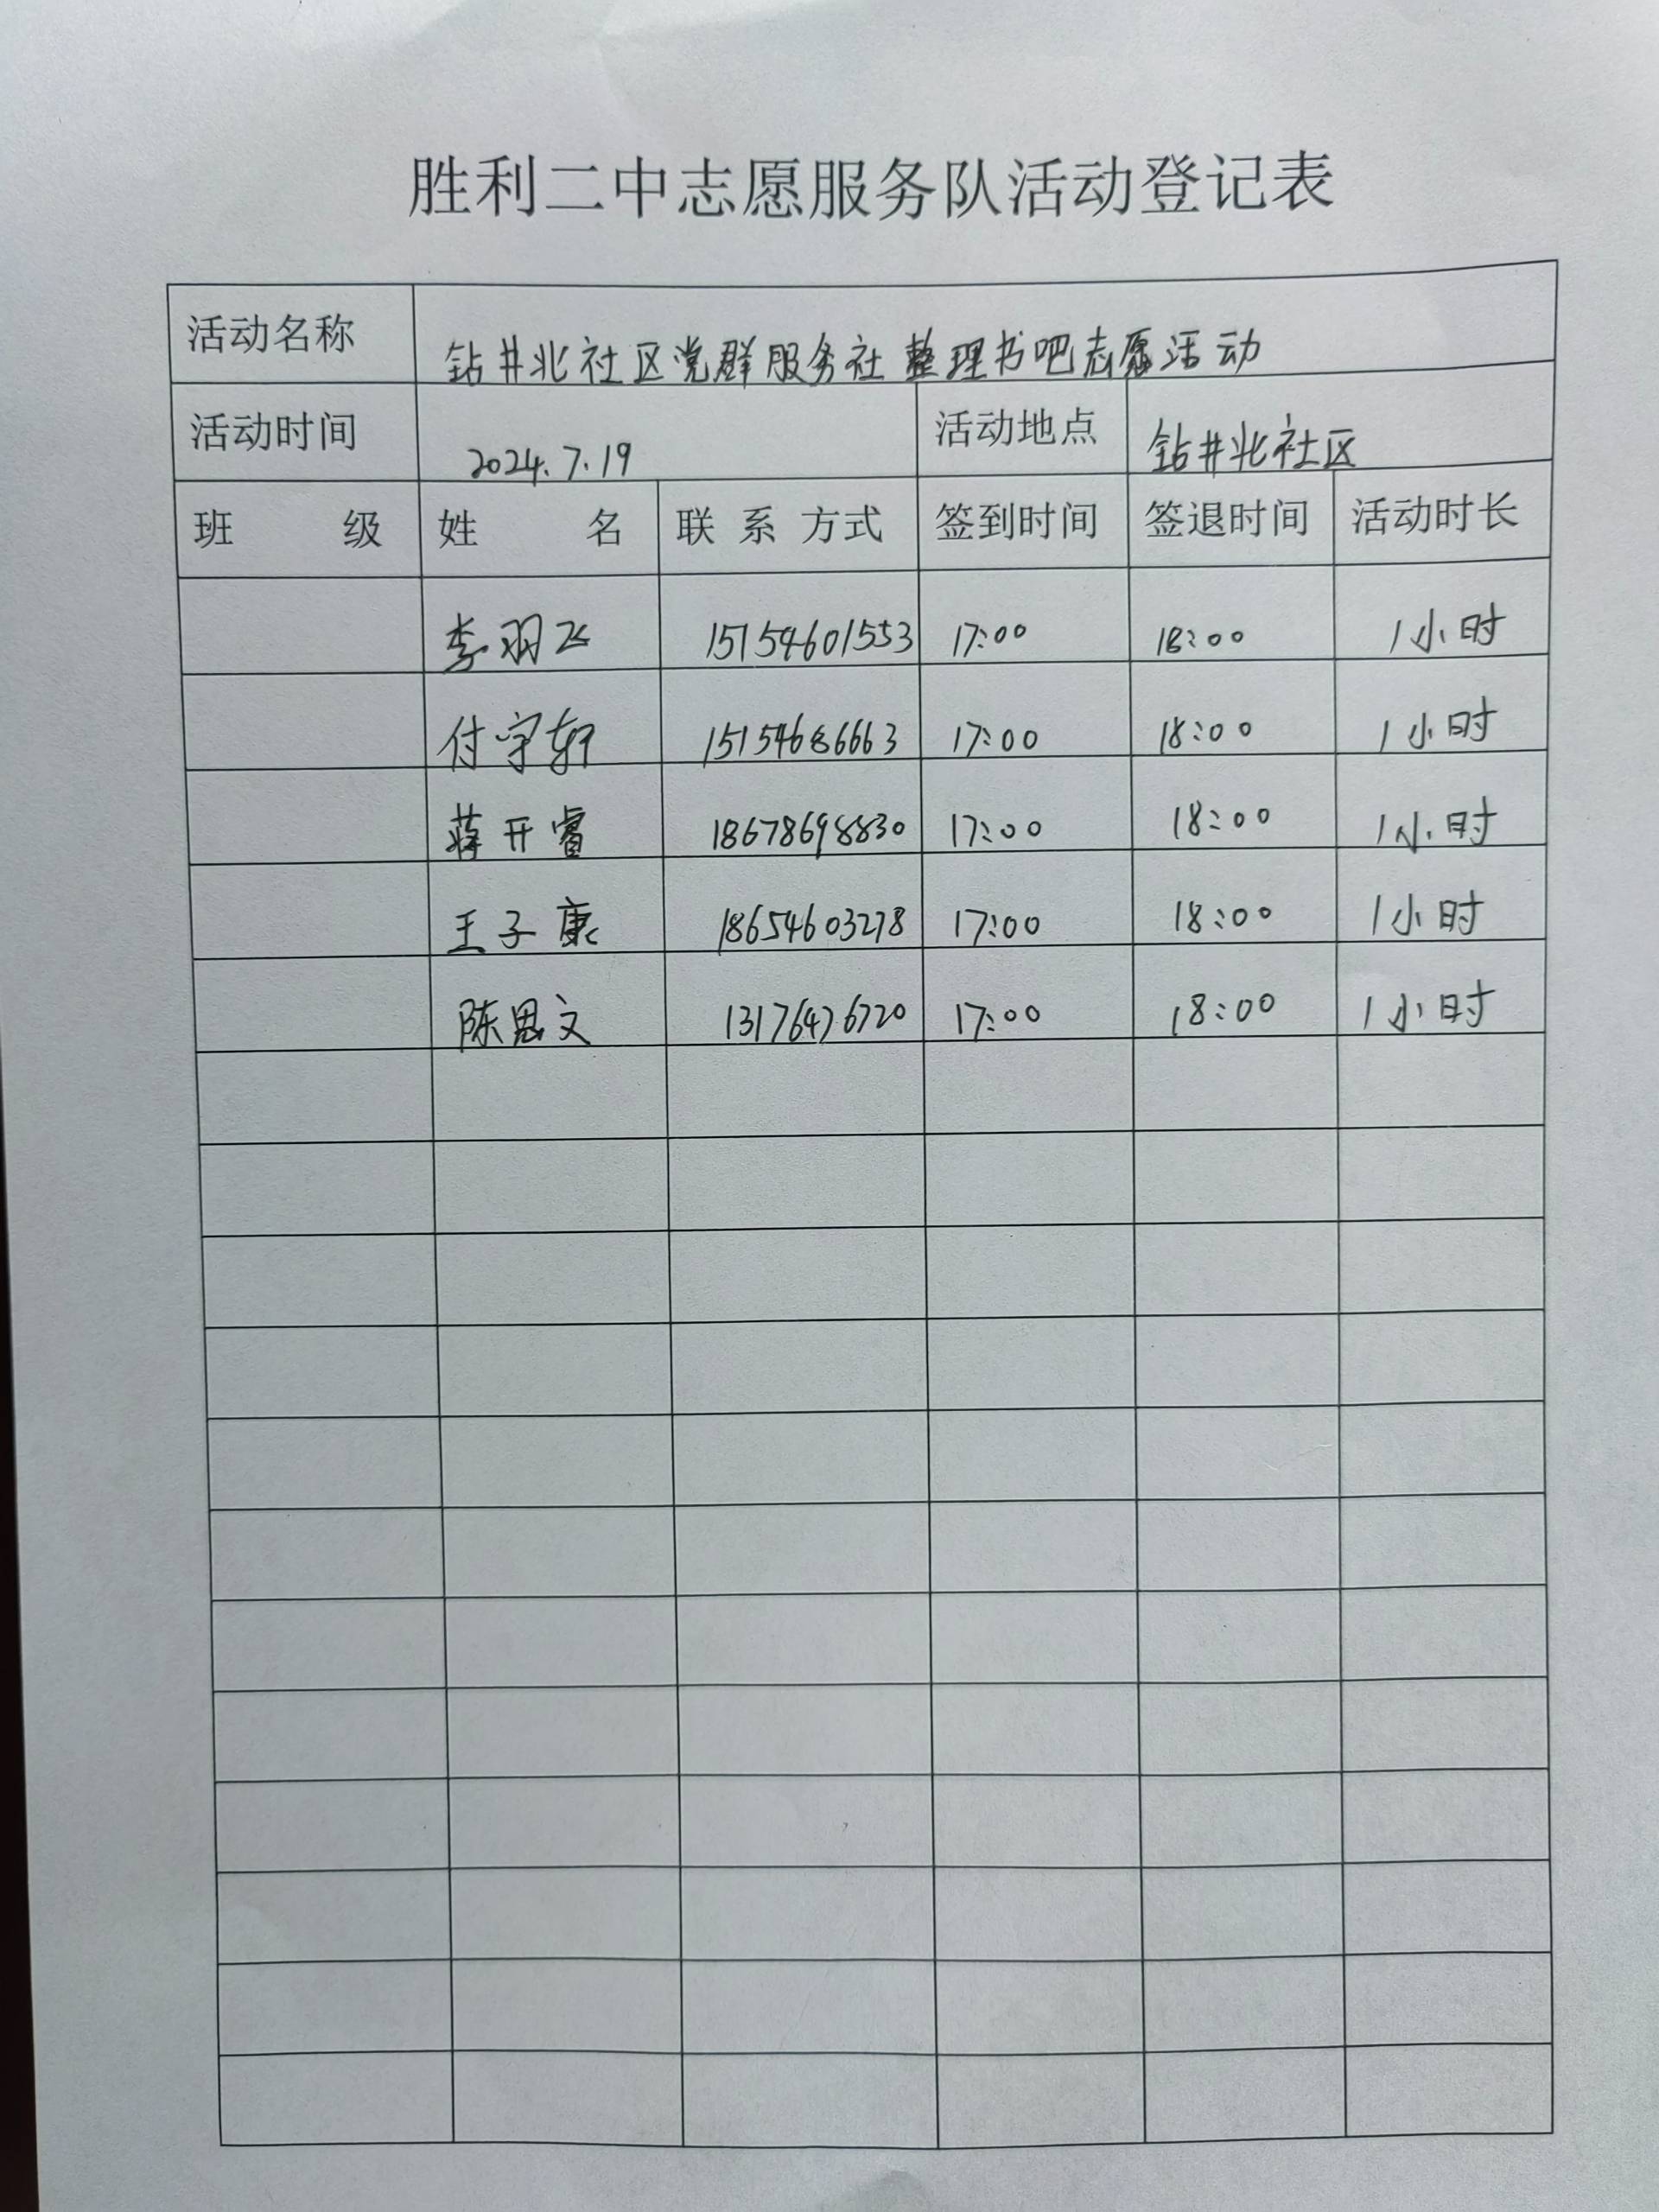 胜利二中志愿服务队活动登记表
活动名称 钻井北社区党群服务社整理书吧志愿活动
活动时间 2024.7.19 活动地点 钻井北社区
班 级 姓 名 联 系 方式 签到时间 签退时间 活动时长
李羽飞 15154601553 17:00 18:00 1小时
付宇轩 15154686663 17:00 18:00 1小时
蒋开睿 18678698830 17:00 18:00 1小时
王子康 18654603278 17:00 18:00 1小时
陈思文 13176476720 17:00 18:00 1小时